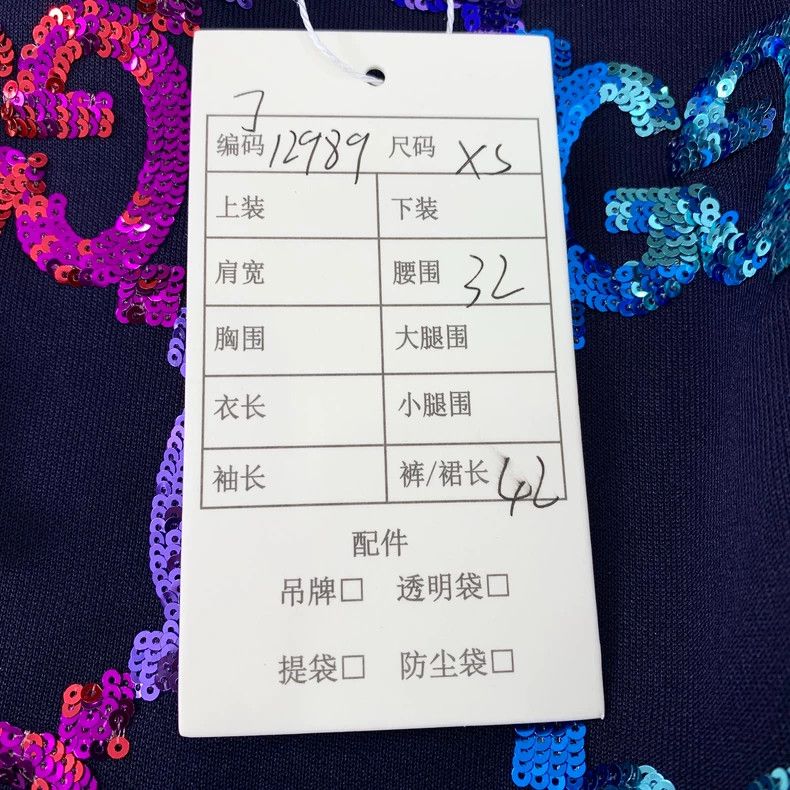 编码 12989 尺码 XS
上装 下装
肩宽 腰围 32
胸围 大腿围
衣长 小腿围
袖长 裤/裙长 42
配件
吊牌□ 透明袋□
提袋□ 防尘袋□